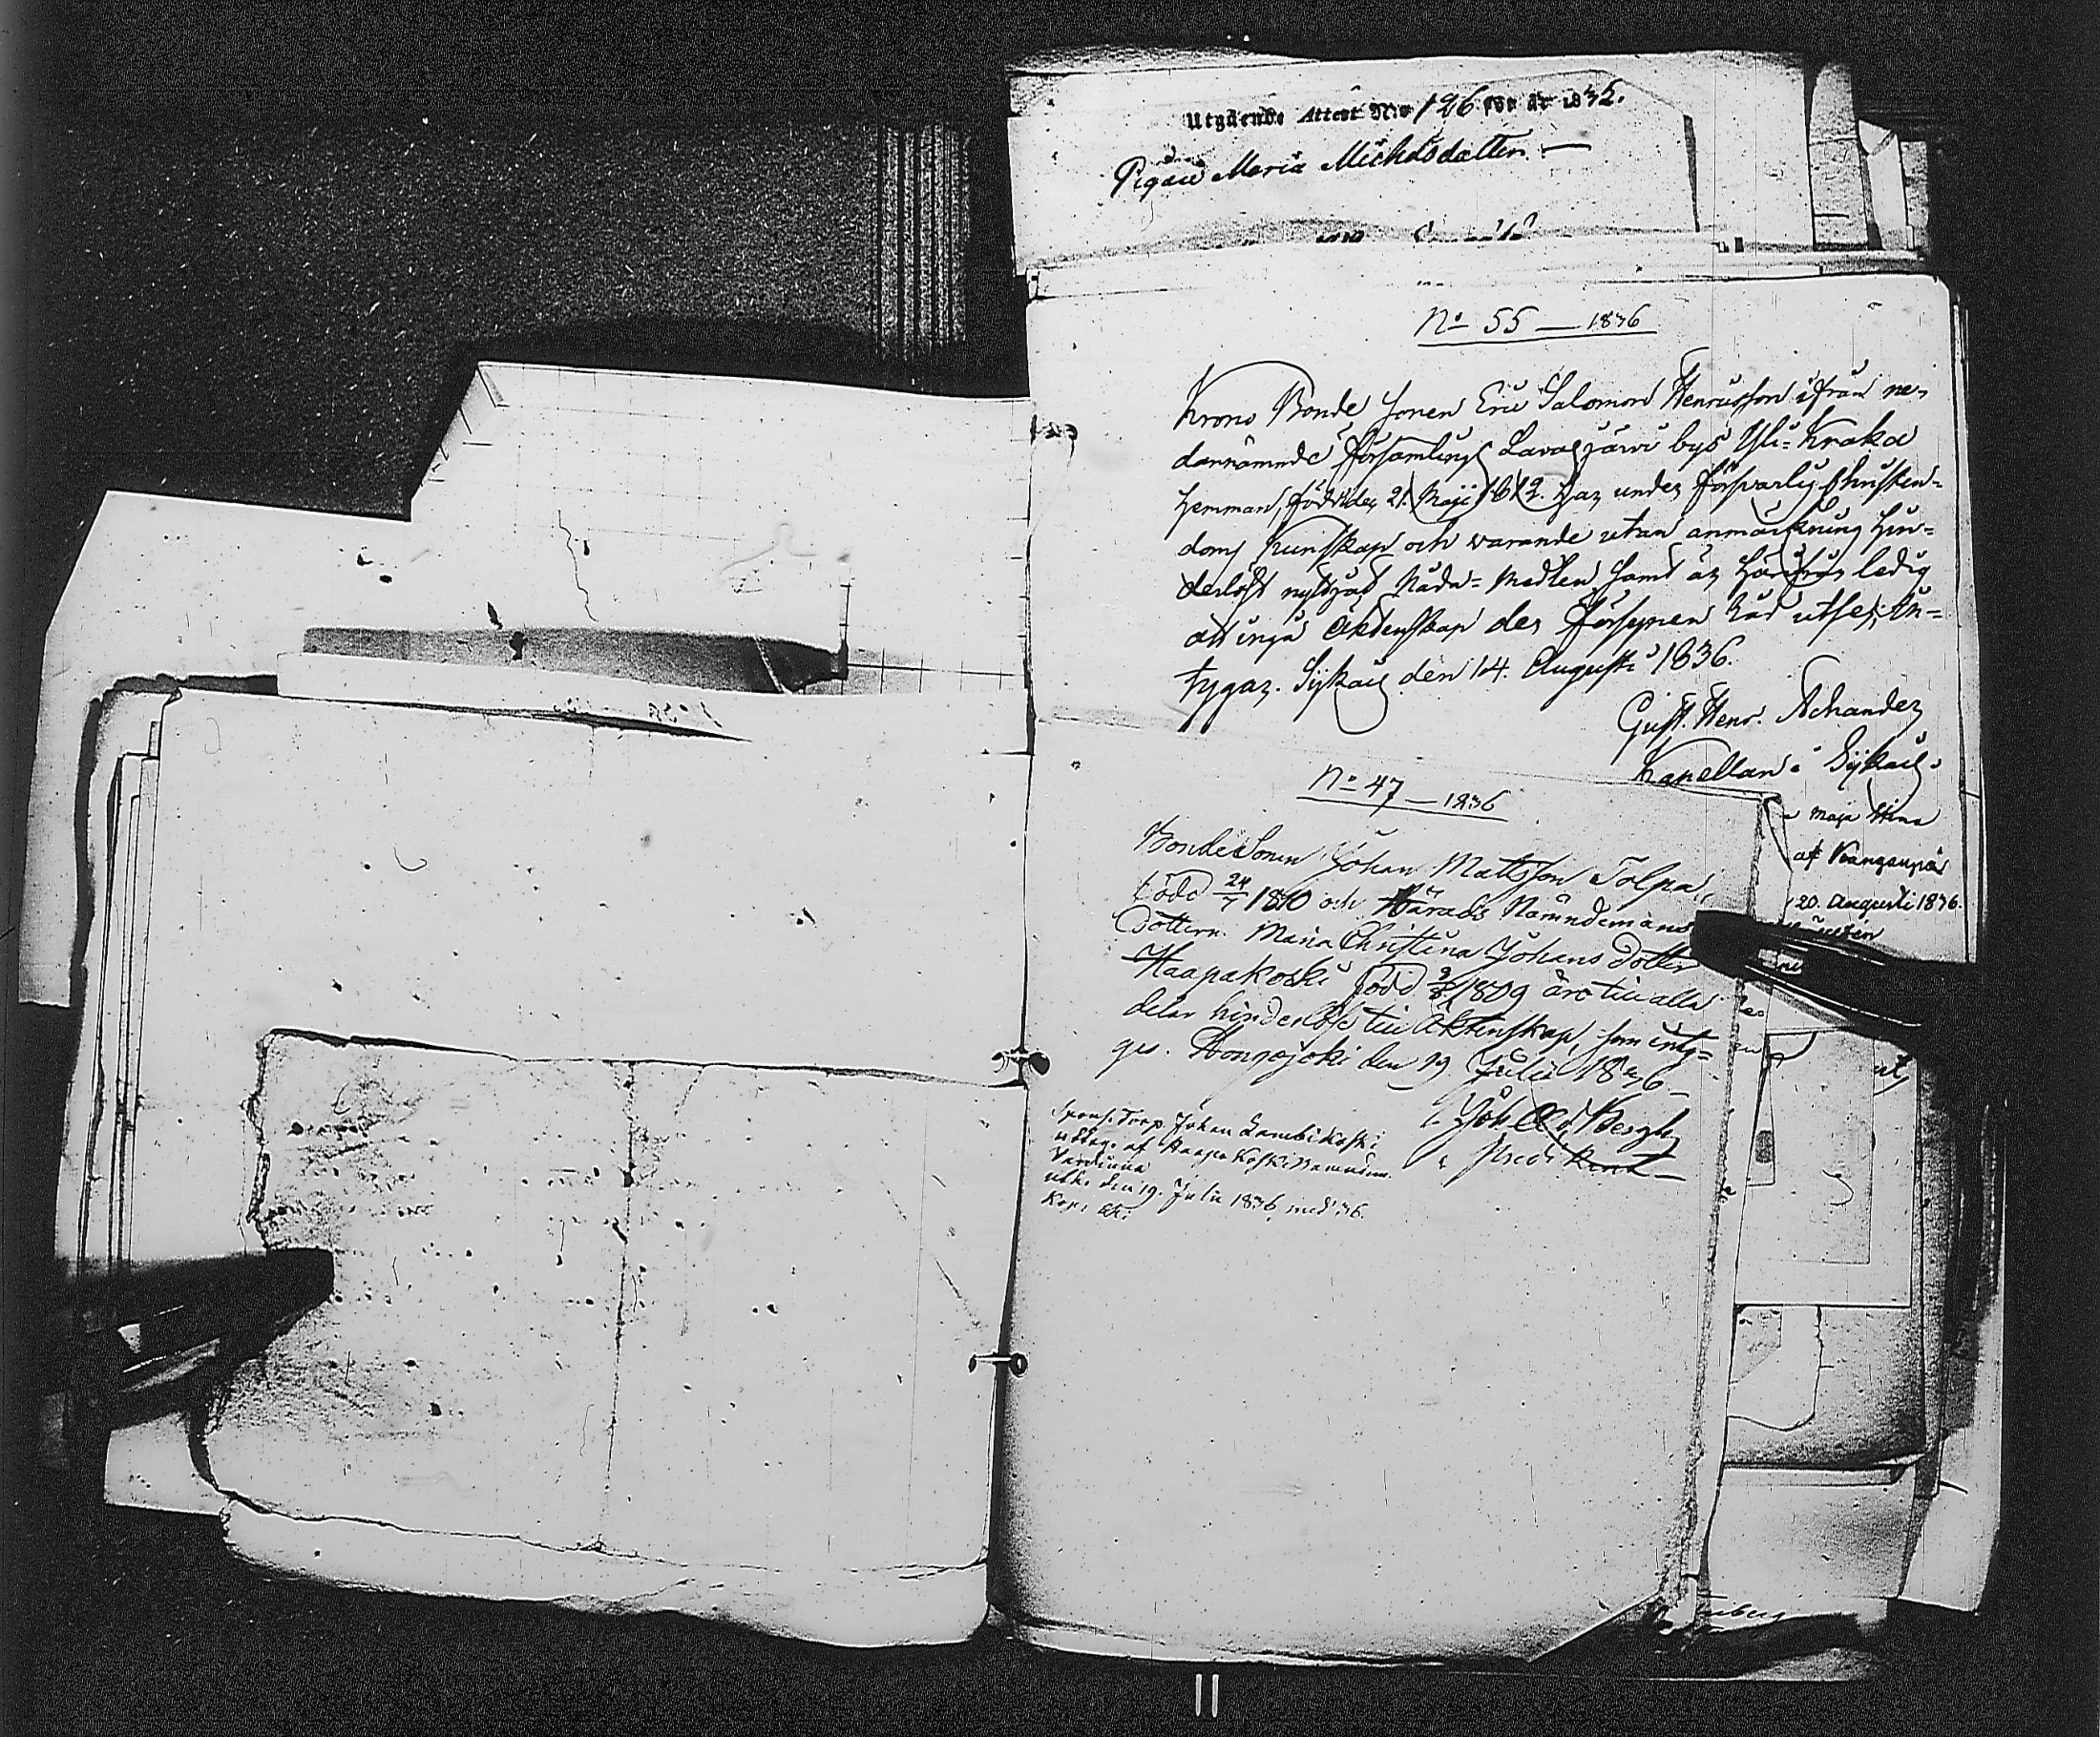 Utgående Attest N:o 126 för år 1835.
Pigan Maria Michelsdotter. —
No 55 — 1836
Krono Bonde Sonen Eric Salomon Henricsson ifrån ne-
dannämnde församlings Lavajärvi bys Yli-Kraka
hemman, född den 21. Maji 1812. har under försvarlig Christen-
doms kunskap och varande utan anmärkning hin-
derlöst nyttjat Nåda-Medlen samt är härifrån ledig
att ingå Äktenskap der Försynen Råd utser; In-
tygar. Sijkais den 14. Augusti 1836.
Gust. Henr. Achander
Kapellan i Sijkais.
Maja Stina
af Kangaspää
20. Augusti 1836.
No 47 — 1836
Bonde Sonen Johan Mattsson Tolpa,
född 24/7 1810 och Härads Nämndemans
Dottern Maria Christina Johans Dotter
Haapakoski född 9/8 1809 äro till alla
delar hinderlöse till Äktenskap, som inty-
gas. Hongojoki den 19 Julii 1836
Joh. Bergh
Predikant
Johan Lambikoski
af Haapakoski
den 19. Julii 1836 med 36.
Kop.